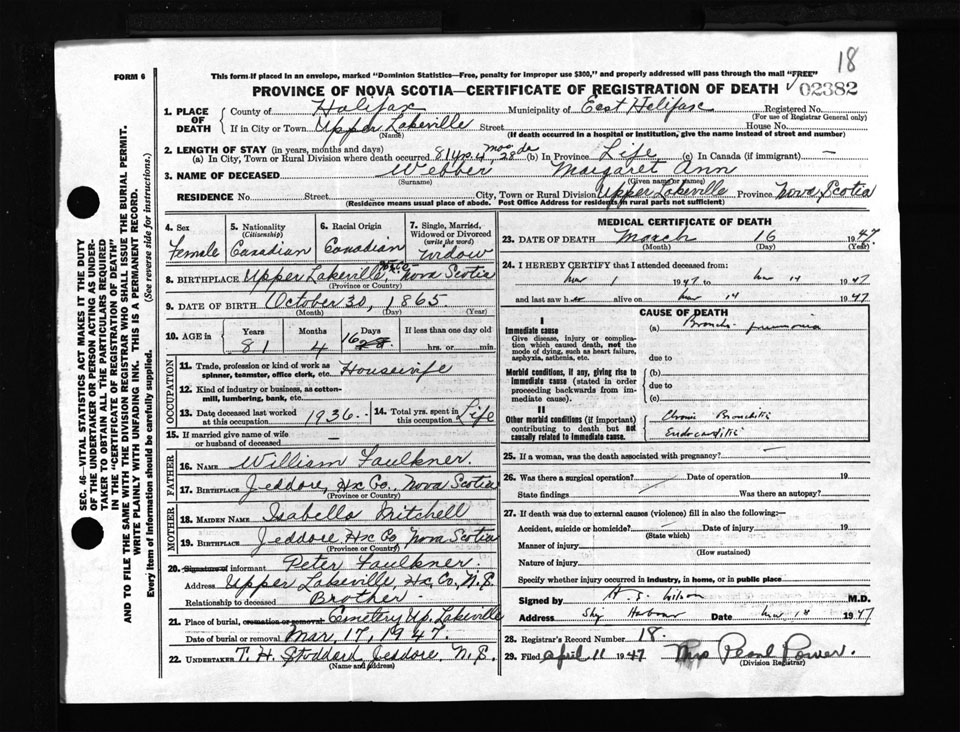 18
FORM 6
This form if placed in an envelope, marked "Dominion Statistics—Free, penalty for improper use $300," and properly addressed will pass through the mail "FREE"
PROVINCE OF NOVA SCOTIA—CERTIFICATE OF REGISTRATION OF DEATH √ 02382
1. PLACE OF DEATH
County of Halifax Municipality of East Halifax Registered No.
(For use of Registrar General only)
If in City or Town Upper Lakeville Street House No.
(Name) (If death occurred in a hospital or institution, give the name instead of street and number)
2. LENGTH OF STAY (in years, months and days)
(a) In City, Town or Rural Division where death occurred 81 yrs. 4 mos 28 da (b) In Province Life (c) In Canada (if immigrant) —
3. NAME OF DECEASED Webber Margaret Ann
(Surname) (Given name or names)
RESIDENCE No. Street City, Town or Rural Division Upper Lakeville Province Nova Scotia
(Residence means usual place of abode. Post Office Address for residents in rural parts not sufficient)
4. Sex
Female
5. Nationality
(Citizenship)
Canadian
6. Racial Origin
Canadian
7. Single, Married,
Widowed or Divorced
(write the word)
Widow
8. BIRTHPLACE Upper Lakeville, Hx Co Nova Scotia
(Province or Country)
9. DATE OF BIRTH October 30, 1865.
(Month) (Day) (Year)
10. AGE in
Years Months Days If less than one day old
81 4 16 28 hrs. or min.
OCCUPATION
11. Trade, profession or kind of work as
spinner, teamster, office clerk, etc. Housewife
12. Kind of industry or business, as cotton-
mill, lumbering, bank, etc.
13. Date deceased last worked
at this occupation 1936.
14. Total yrs. spent in
this occupation Life
15. If married give name of wife
or husband of deceased —
FATHER
16. NAME William Faulkner.
17. BIRTHPLACE Jeddore, Hx Co., Nova Scotia
(Province or Country)
MOTHER
18. MAIDEN NAME Isabella Mitchell
19. BIRTHPLACE Jeddore Hx Co, Nova Scotia
(Province or Country)
20. Signature of informant Peter Faulkner.
Address Upper Lakeville, Hx. Co., N.S.
Relationship to deceased Brother.
21. Place of burial, cremation or removal Cemetery Up. Lakeville
Date of burial or removal Mar, 17, 1947.
22. UNDERTAKER T. H. Stoddard, Jeddore, N.S.
(Name and address)
MEDICAL CERTIFICATE OF DEATH
23. DATE OF DEATH March 16 1947
(Month) (Day) (Year)
24. I HEREBY CERTIFY that I attended deceased from:
Mar 1 1947 to Mar 14 1947
and last saw her alive on Mar 14 1947
CAUSE OF DEATH
I
Immediate cause
Give disease, injury or complica-
tion which caused death, not the
mode of dying, such as heart failure,
asphyxia, asthenia, etc.
(a) Broncho-pneumonia
due to
Morbid conditions, if any, giving rise to
immediate cause (stated in order
proceeding backwards from im-
mediate cause).
(b)
due to
(c)
II
Other morbid conditions (if important)
contributing to death but not
causally related to immediate cause.
Chronic Bronchitis
Endocarditis
25. If a woman, was the death associated with pregnancy?
26. Was there a surgical operation? Date of operation 19
State findings Was there an autopsy?
27. If death was due to external causes (violence) fill in also the following:—
Accident, suicide or homicide? Date of injury 19
(State which)
Manner of injury
(How sustained)
Nature of injury
Specify whether injury occurred in industry, in home, or in public place
Signed by M.D.
Address Ship Harbour Date Mar 18 1947
28. Registrar's Record Number 18.
29. Filed April 11 1947 Mrs Pearl Power.
(Division Registrar)
SEC. 46—VITAL STATISTICS ACT MAKES IT THE DUTY
OF THE UNDERTAKER OR PERSON ACTING AS UNDER-
TAKER TO OBTAIN ALL THE PARTICULARS REQUIRED
IN THE "CERTIFICATE OF REGISTRATION OF DEATH"
AND TO FILE THE SAME WITH THE DIVISION REGISTRAR WHO SHALL ISSUE THE BURIAL PERMIT.
WRITE PLAINLY WITH UNFADING INK. THIS IS A PERMANENT RECORD.
Every item of information should be carefully supplied. (See reverse side for instructions.)